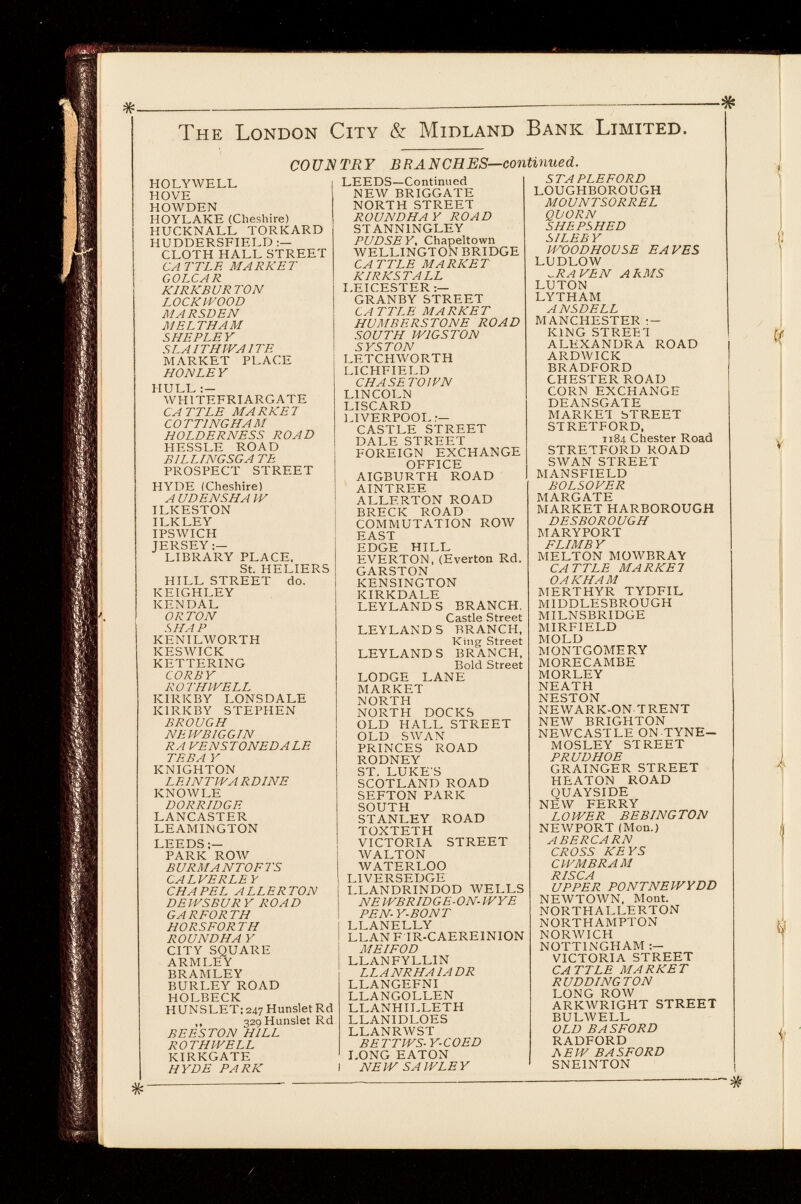 THE LONDON CITY & MIDLAND BANK LIMITED.
COUNTRY BRANCHES—continued.
HOLYWELL
HOVE
HOWDEN
HOYLAKE (Cheshire)
HUCKNALL TORKARD
HUDDERSFIELD :—
CLOTH HALL STREET
CATTLE MARKET
GOLCAR
KIRKBURTON
LOCKWOOD
MARSDEN
MELTHAM
SHEPLEY
SLAITHWAITE
MARKET PLACE
HONLEY
HULL :—
WHITEFRIARGATE
CATTLE MARKET
COTTINGHAM
HOLDERNESS ROAD
HESSLE ROAD
BILLINGSGATE
PROSPECT STREET
HYDE (Cheshire)
AUDENSHAW
ILKESTON
ILKLEY
IPSWICH
JERSEY :—
LIBRARY PLACE,
St. HELIERS
HILL STREET do.
KEIGHLEY
KENDAL
ORTON
SHAP
KENILWORTH
KESWICK
KETTERING
CORBY
ROTHWELL
KIRKBY LONSDALE
KIRKBY STEPHEN
BROUGH
NEWBIGGIN
RAVENSTONEDALE
TEBAY
KNIGHTON
LEINTWARDINE
KNOWLE
DORRIDGE
LANCASTER
LEAMINGTON
LEEDS ;—
PARK ROW
BURMANTOFTS
CALVERLEY
CHAPEL ALLERTON
DEWSBURY ROAD
GARFORTH
HORSFORTH
ROUNDHAY
CITY SQUARE
ARMLEY
BRAMLEY
BURLEY ROAD
HOLBECK
HUNSLET; 247 Hunslet Rd
,, 329 Hunslet Rd
BEESTON HILL
ROTHWELL
KIRKGATE
HYDE PARK
LEEDS—Continued
NEW BRIGGATE
NORTH STREET
ROUNDHAY ROAD
STANNINGLEY
PUDSEY, Chapeltown
WELLINGTON BRIDGE
CATTLE MARKET
KIRKSTALL
LEICESTER :—
GRANBY STREET
CATTLE MARKET
HUMBERSTONE ROAD
SOUTH WIGSTON
SYSTON
LETCHWORTH
LICHFIELD
CHASETOWN
LINCOLN
LISCARD
LIVERPOOL :—
CASTLE STREET
DALE STREET
FOREIGN EXCHANGE
OFFICE
AIGBURTH ROAD
AINTREE
ALLERTON ROAD
BRECK ROAD
COMMUTATION ROW
EAST
EDGE HILL
EVERTON, (Everton Rd.
GARSTON
KENSINGTON
KIRKDALE
LEYLANDS BRANCH.
Castle Street
LEYLANDS BRANCH,
King Street
LEYLANDS BRANCH,
Bold Street
LODGE LANE
MARKET
NORTH
NORTH DOCKS
OLD HALL STREET
OLD SWAN
PRINCES ROAD
RODNEY
ST. LUKE'S
SCOTLAND ROAD
SEFTON PARK
SOUTH
STANLEY ROAD
TOXTETH
VICTORIA STREET
WALTON
WATERLOO
LIVERSEDGE
LLANDRINDOD WELLS
NEWBRIDGE-ON-WYE
PEN-Y-BONT
LLANELLY
LLANFIR-CAEREINION
MEIFOD
LLANFYLLIN
LLANRHAIADR
LLANGEFNI
LLANGOLLEN
LLANHILLETH
LLANIDLOES
LLANRWST
BETTWS-Y-COED
LONG EATON
NEW SAWLEY
STAPLEFORD
LOUGHBOROUGH
MOUNTSORREL
QUORN
SHEPSHED
SILEBY
WOODHOUSE EAVES
LUDLOW
CRAVEN ARMS
LUTON
LYTHAM
ANSDELL
MANCHESTER :—
KING STREET
ALEXANDRA ROAD
ARDWICK
BRADFORD
CHESTER ROAD
CORN EXCHANGE
DEANSGATE
MARKET STREET
STRETFORD,
1184 Chester Road
STRETFORD ROAD
SWAN STREET
MANSFIELD
BOLSOVER
MARGATE
MARKET HARBOROUGH
DESBOROUGH
MARYPORT
FLIMBY
MELTON MOWBRAY
CATTLE MARKET
OAKHAM
MERTHYR TYDFIL
MIDDLESBROUGH
MILNSBRIDGE
MIRFIELD
MOLD
MONTGOMERY
MORECAMBE
MORLEY
NEATH
NESTON
NEWARK-ON-TRENT
NEW BRIGHTON
NEWCASTLE ON-TYNE—
MOSLEY STREET
PRUDHOE
GRAINGER STREET
HEATON ROAD
QUAYSIDE
NEW FERRY
LOWER BEBINGTON
NEWPORT (Mon.)
ABERCARN
CROSS KEYS
CWMBRAM
RISCA
UPPER PONTNEWYDD
NEWTOWN, Mont.
NORTHALLERTON
NORTHAMPTON
NORWICH
NOTTINGHAM :—
VICTORIA STREET
CATTLE MARKET
RUDDINGTON
LONG ROW
ARKWRIGHT STREET
BULWELL
OLD BASFORD
RADFORD
NEW BASFORD
SNEINTON